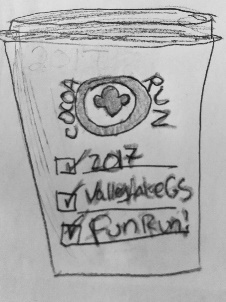 2017
COCOA RUN
2017
ValleylakeGS
FunRun!